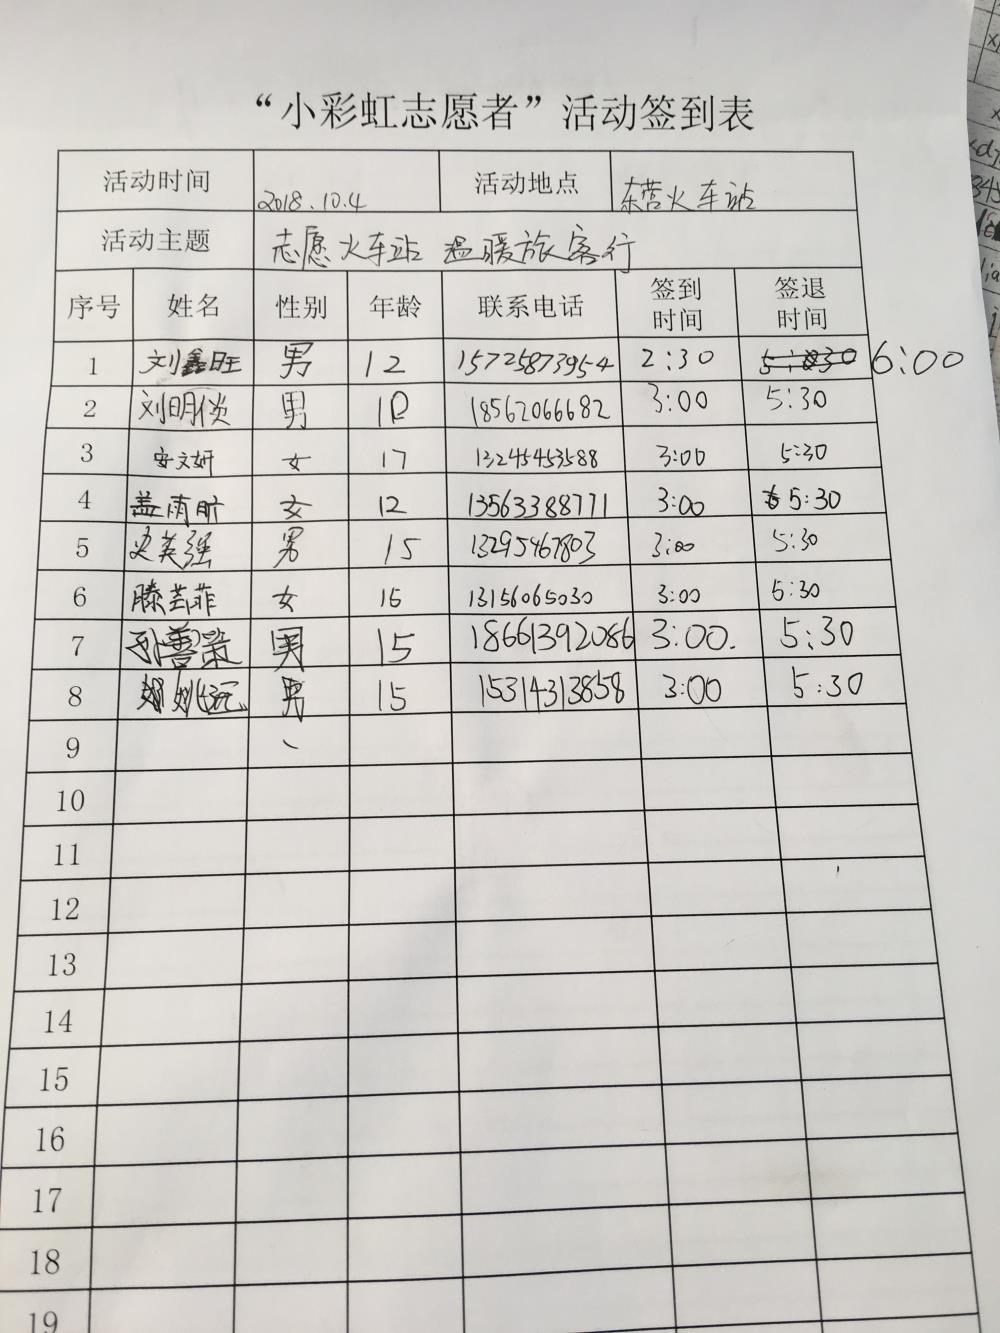 “小彩虹志愿者”活动签到表
活动时间 2018.10.4 活动地点 东营火车站
活动主题 志愿火车站 温暖旅客行
序号 姓名 性别 年龄 联系电话 签到时间 签退时间
1 刘鑫旺 男 12 15725873954 2:30 6:00
2 刘明 男 18562066682 3:00 5:30
3 安文妍 女 17 13245453588 3:00 5:30
4 盖雨昕 女 12 13563388771 3:00 5:30
5 史英强 男 15 13295467803 3:00 5:30
6 滕芸菲 女 15 13156065030 3:00 5:30
7 男 15 18661392086 3:00. 5:30
8 男 15 15314313858 3:00 5:30
9
10
11
12
13
14
15
16
17
18
19